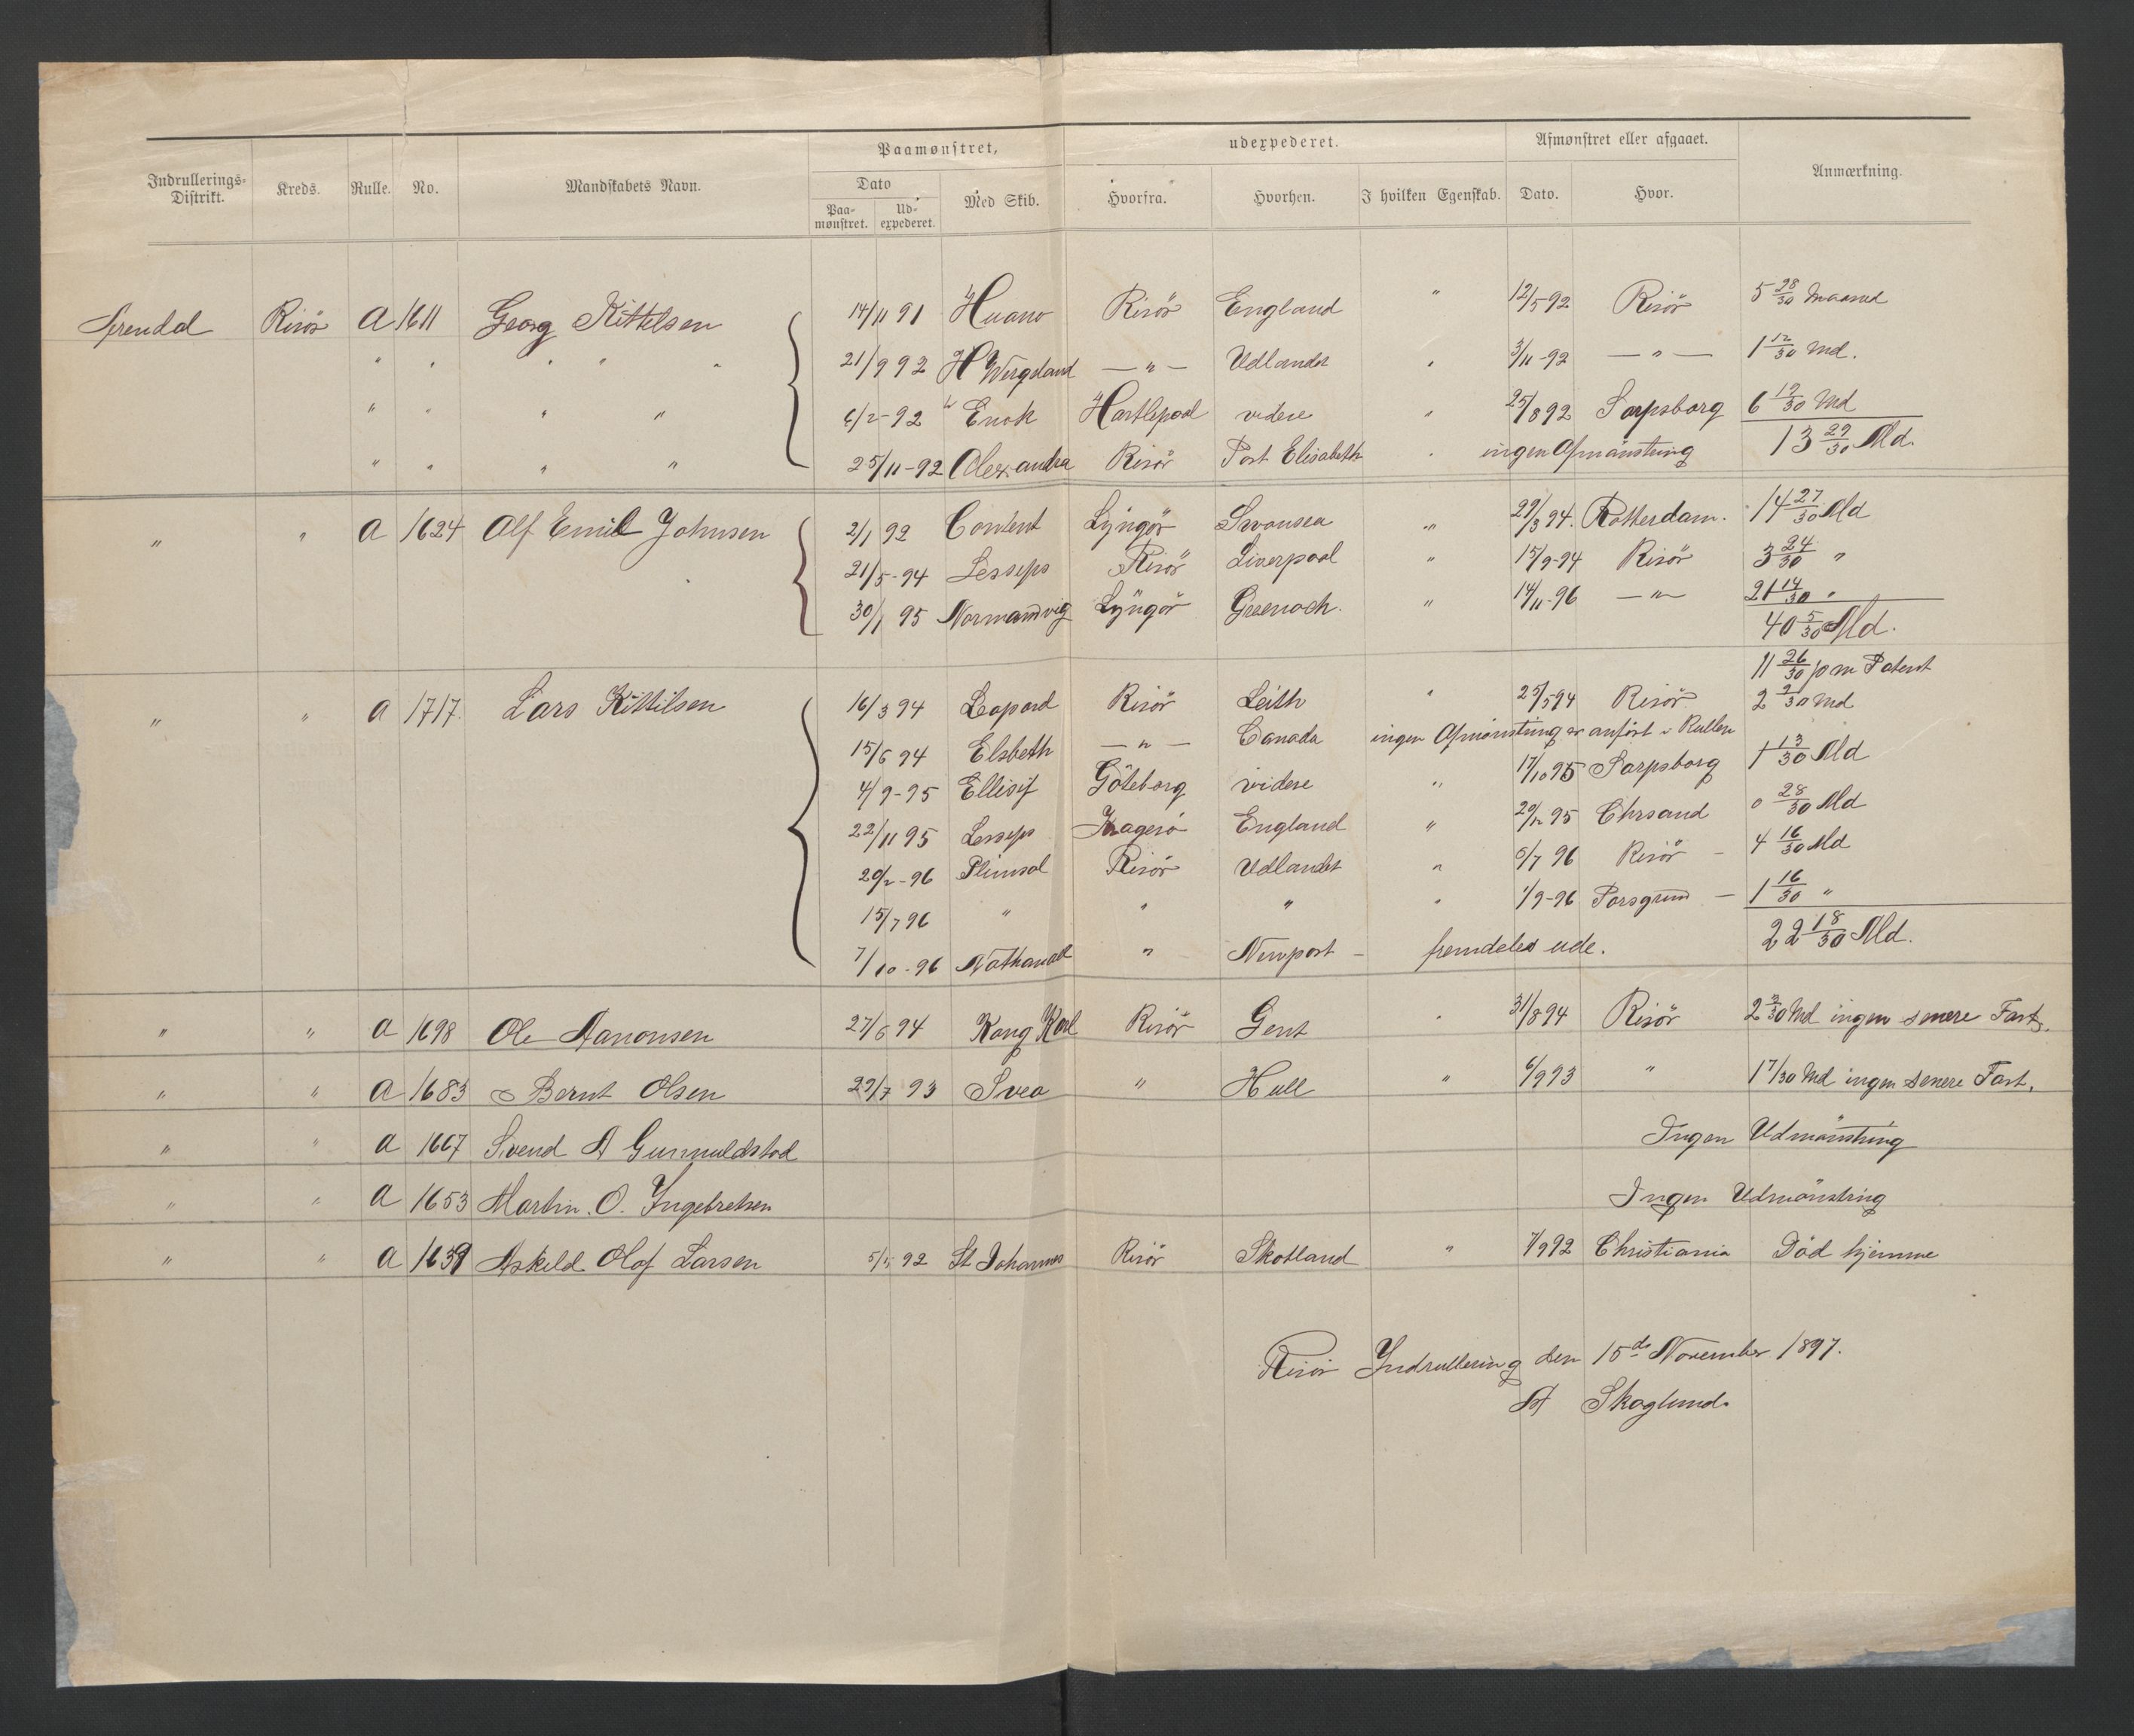 Paamønstret, udexpederet. Afmønstret eller afgaaet.
Indrullerings-Distrikt. Kreds. Rulle. No. Mandskabets Navn. Dato Med Skib. Hvorfra. Hvorhen. I hvilken Egenskab. Dato. Hvor. Anmærkning.
Paa-mønstret. Ud-expederet.
Arendal Risör A 1611 Georg Kittelsen 14/11 91 Huano Risör England " 12/5 92 Risör 5 28/30 Maaned
" " " " " 21/9 92 H Wergeland — " — Udlandet " 3/11-92 — " — 1 12/30 Md.
" " " " 6/2-92 Enok Hartlepool videre " 25/8 92 Sarpsborg 6 19/30 Md
13 29/30 Md.
" " " " 25/11-92 Alexandra Risör Port Elisabeth " ingen Afmönstring
" " A 1624 Alf Emil Johnsen 2/1 92 Content Lyngör Swansea " 29/3 94. Rotterdam. 14 27/30 Md
21/5-94 Lesseps Risör Liverpool " 15/9-94 Risör 3 24/30 "
30/1 95 Normandvig Lyngör Greenock. " 14/11-96 — " — 21 14/30 "
40 5/30 Md.
11 26/30 pm Patent
" " A 1717. Lars Kittilsen 16/3 94 Leopard Risör Leith " 25/5 94 Risör 2 9/30 Md
15/6 94 Elsbeth — " — Canada ingen Afmönstring er anfört i Rullen
4/9-95 Ellisif Göteborg videre " 17/10 95 Sarpsborg 1 13/30 Md
22/11 95 Lesseps Kragerö England " 20/12 95 Chrsand 0 28/30 Md
20/2-96 Plimsol Risör Udlandet " 5/7 96 Risör - 4 16/30 Md
15/7 96 " " " " 1/9-96 Porsgrund — 1 16/30 "
22 18/30 Md.
7/10-96 Nathanael " Newport - fremdeles ude.
" " A 1698 Ole Aanonsen 27/6 94 Kong Karl Risör Gent " 31/8 94 Risör 2 3/30 Md ingen senere Fart.
" " A 1683 Bernt Olsen 29/7 93 Svea " Hull " 6/9 93 " 1 7/30 Md ingen senere Fart.
" " A 1667 Svend A Gunnuldstad Ingen Udmönstring
" " A 1653 Martin. O. Ingebretsen Ingen Udmönstring
" " A 1639 Askild Olaf Larsen 92 St Johannes Risör Skotland " 7/9 92 Christiania Död hjemme
Risör Indrullering den 15de November 1897.
A Skoglund.